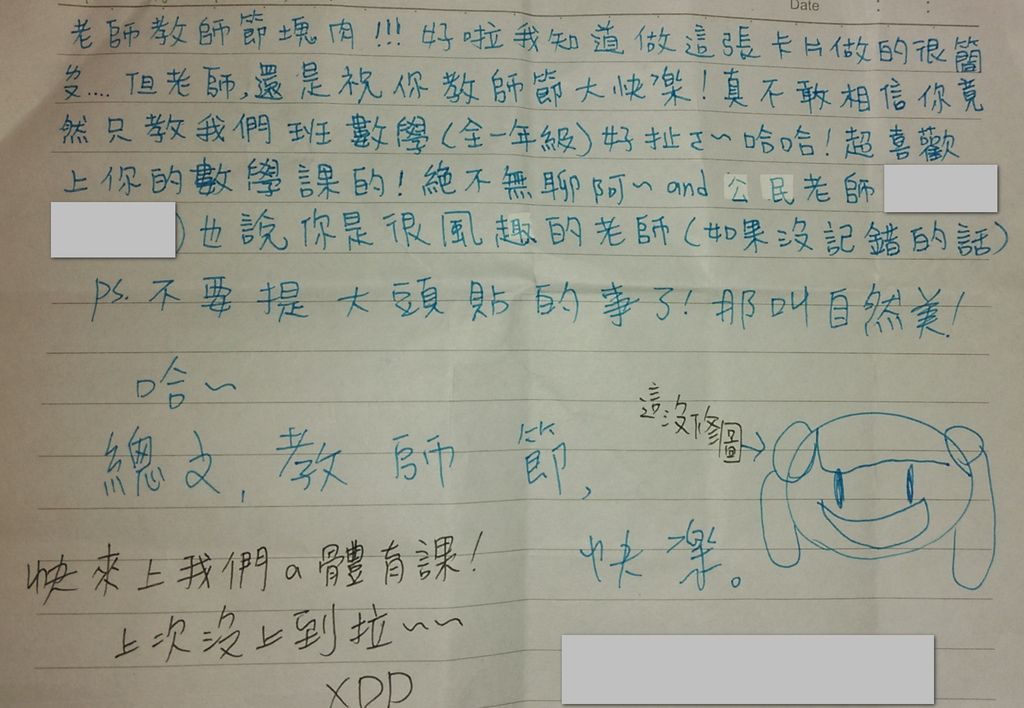 Date
老師教師節塊肉!!! 好啦我知道做這張卡片做的很簡
ㄆ.... 但老師,還是祝你教師節大快樂!真不敢相信你竟
然只教我們班數學(全一年級)好扯ㄛ~哈哈!超喜歡
上你的數學課的!絕不無聊阿~and 公民老師
)也說你是很風趣的老師(如果沒記錯的話)
PS. 不要提大頭貼的事了!那叫自然美!
哈~
這沒修圖
總之, 教師節,
快樂。
快來上我們a體育課!
上次沒上到拉~~
XDD